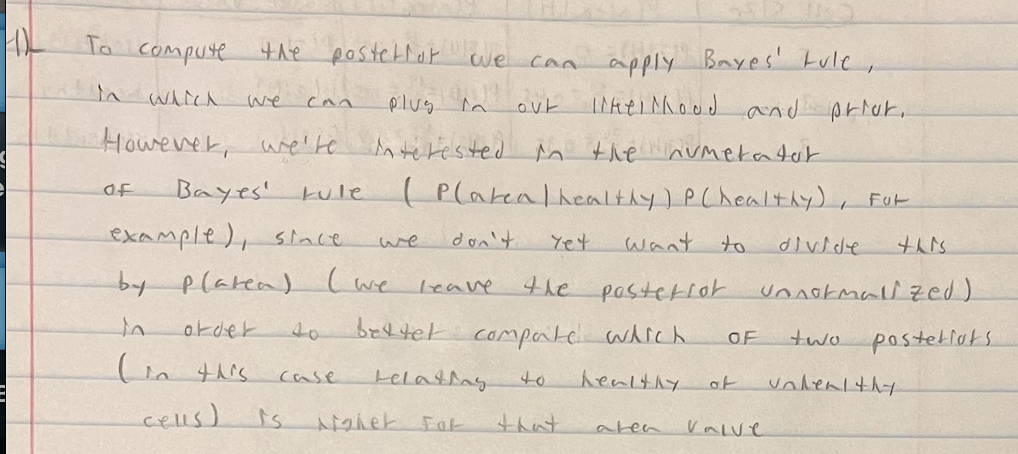 1) To compute the posterior we can apply Bayes' rule,
in which we can plug in our likelihood and prior.
However, we're interested in the numerator
of Bayes' rule (P(area|healthy)P(healthy), for
example), since we don't yet want to divide this
by P(area) (we leave the posterior unnormalized)
in order to better compare which of two posteriors
(in this case relating to healthy or unhealthy
cells) is higher for that area value